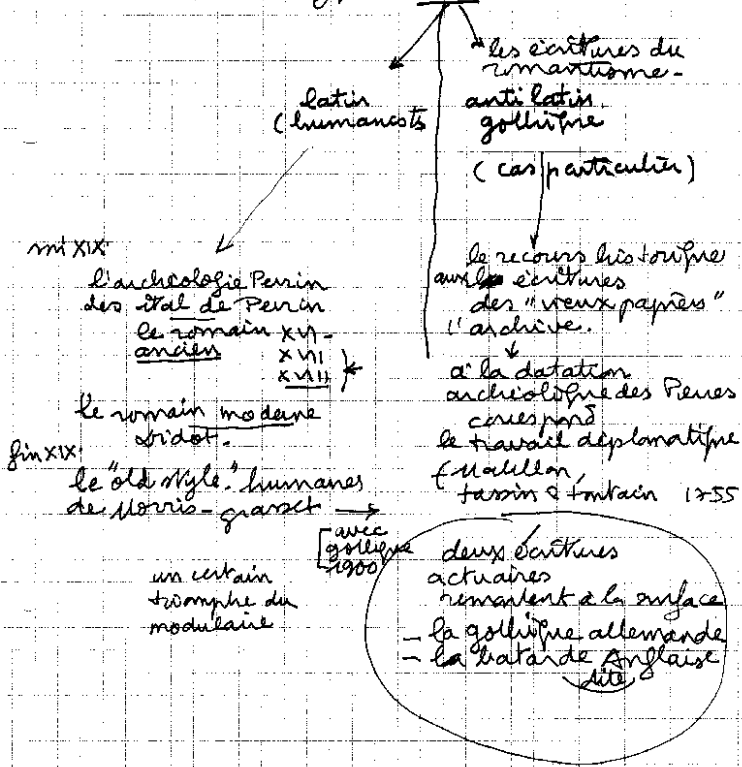 les écritures du
romantisme -
anti latin
gothique
(cas particulier)
latin
(humanists
mi XIX
l'archéologie Perrin
des ital de Perrin
le romain XVI -
ancien XVII
XVIII
le romain moderne
Didot.
fin XIX
le "old style" humanes
de Morris - grasset
[avec
gothique
1900
un certain
triomphe du
modulaire
le recours historique
aux écritures
des "vieux papiers"
l'archive.
à la datation
archéologique des Pierres
correspond
le travail diplomatique
(Mabillon,
tassin & toutain 1755
deux écritures
actuaires
remontent à la surface
- la gothique allemande
- la batarde Anglaise
dite